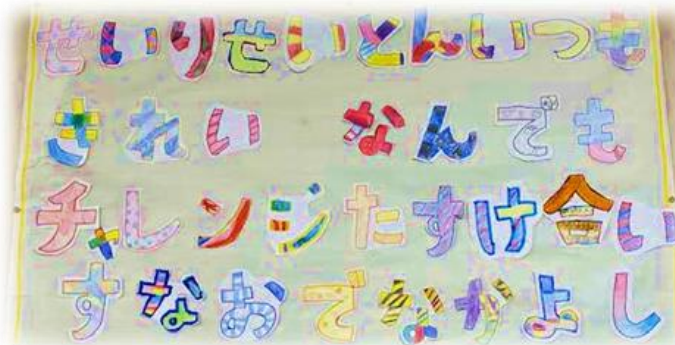 せいりせいとんいつも
きれい なんでも
チャレンジたすけ合い
すなおでなかよし